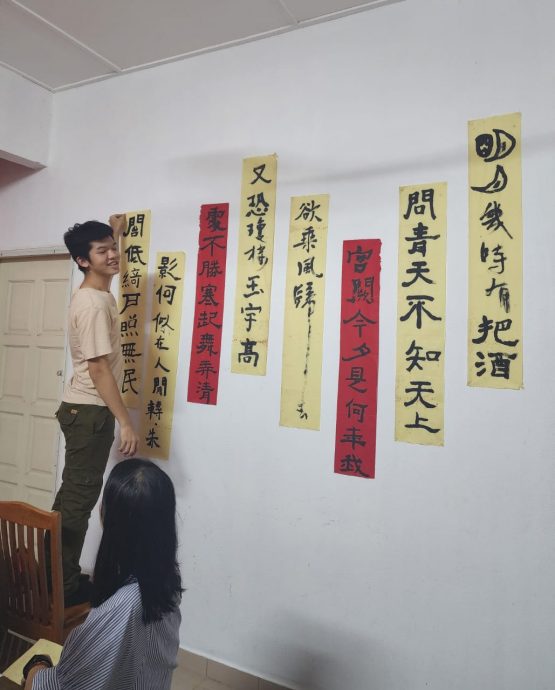 明月幾時有把酒
問青天不知天上
宮闕今夕是何年我
欲乘風歸去
又恐瓊樓玉宇高
處不勝寒起舞弄清
影何似在人間轉朱
閣低綺戶照無眠